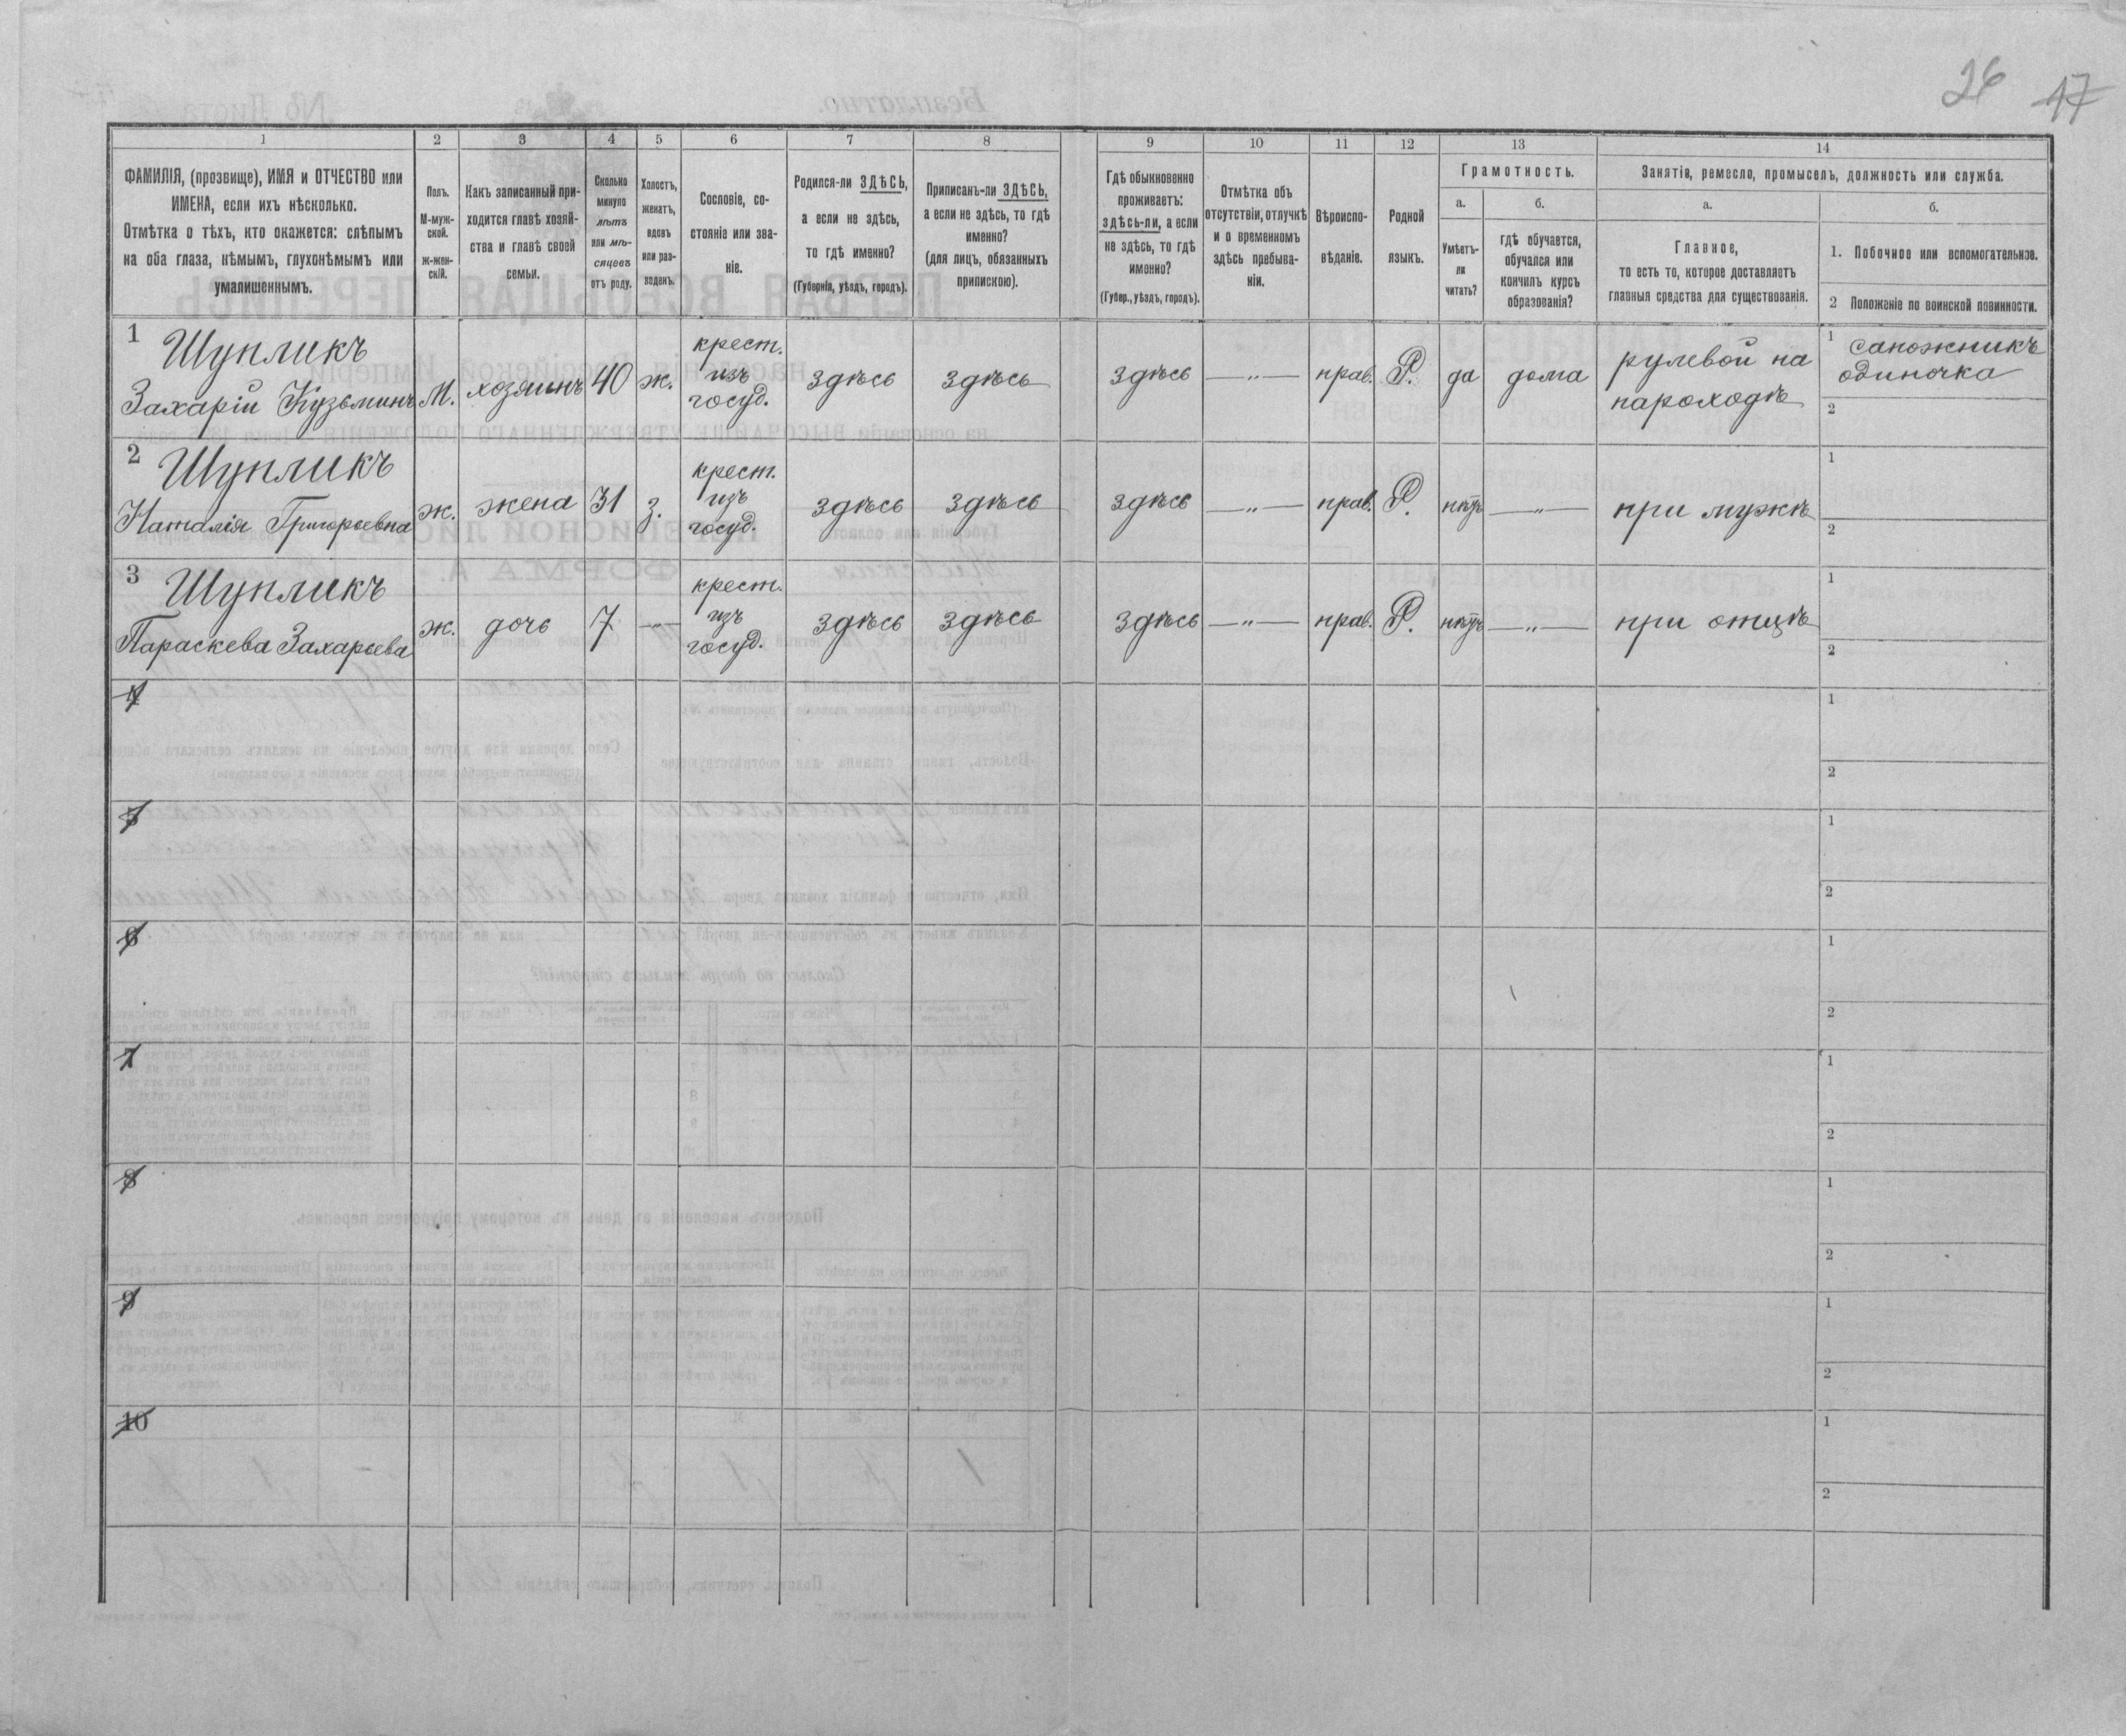 26 17
1 2 3 4 5 6 7 8 9 10 11 12 13 14
ФАМИЛІЯ, (прозвище), ИМЯ и ОТЧЕСТВО или
ИМЕНА, если ихъ нѣсколько.
Отмѣтка о тѣхъ, кто окажется: слѣпымъ
на оба глаза, нѣмымъ, глухонѣмымъ или
умалишеннымъ.
Полъ.
М-муж-
ской.
ж-жен-
скій.
Какъ записанный при-
ходится главѣ хозяй-
ства и главѣ своей
семьи.
Сколько
минуло
лѣтъ
или мѣ-
сяцевъ
отъ роду.
Холостъ,
женатъ,
вдовъ
или раз-
веденъ.
Сословіе, со-
стояніе или зва-
ніе.
Родился-ли ЗДѢСЬ,
а если не здѣсь,
то гдѣ именно?
(Губернія, уѣздъ, городъ).
Приписанъ-ли ЗДѢСЬ,
а если не здѣсь, то гдѣ
именно?
(для лицъ, обязанныхъ
припискою).
Гдѣ обыкновенно
проживаетъ:
здѣсь-ли, а если
не здѣсь, то гдѣ
именно?
(Губер., уѣздъ, городъ).
Отмѣтка объ
отсутствіи, отлучкѣ
и о временномъ
здѣсь пребыва-
ніи.
Вѣроиспо-
вѣданіе.
Родной
языкъ.
Грамотность.
а.
Умѣетъ-
ли
читать?
б.
гдѣ обучается,
обучался или
кончилъ курсъ
образованія?
Занятіе, ремесло, промыселъ, должность или служба.
а.
Главное,
то есть то, которое доставляетъ
главныя средства для существованія.
б.
1. Побочное или вспомогательное.
2 Положеніе по воинской повинности.
1 Шупликъ
Захарій Кузьминъ
М.
хозяинъ
40
ж.
крест.
изъ
госуд.
здѣсь
здѣсь
здѣсь
— „ —
прав.
Р.
да
дома
рулевой на
пароходѣ
1 сапожникъ
одиночка
2
2 Шупликъ
Наталія Григорьевна
ж.
жена
31
з.
крест.
изъ
госуд.
здѣсь
здѣсь
здѣсь
— „ —
прав.
Р.
нѣтъ
— „ —
при мужѣ
1
2
3 Шупликъ
Параскева Захарьева
ж.
дочь
7
— „ —
крест.
изъ
госуд.
здѣсь
здѣсь
здѣсь
— „ —
прав.
Р.
нѣтъ
— „ —
при отцѣ
1
2
4
1
2
5
1
2
6
1
2
7
1
2
8
1
2
9
1
2
10
1
2